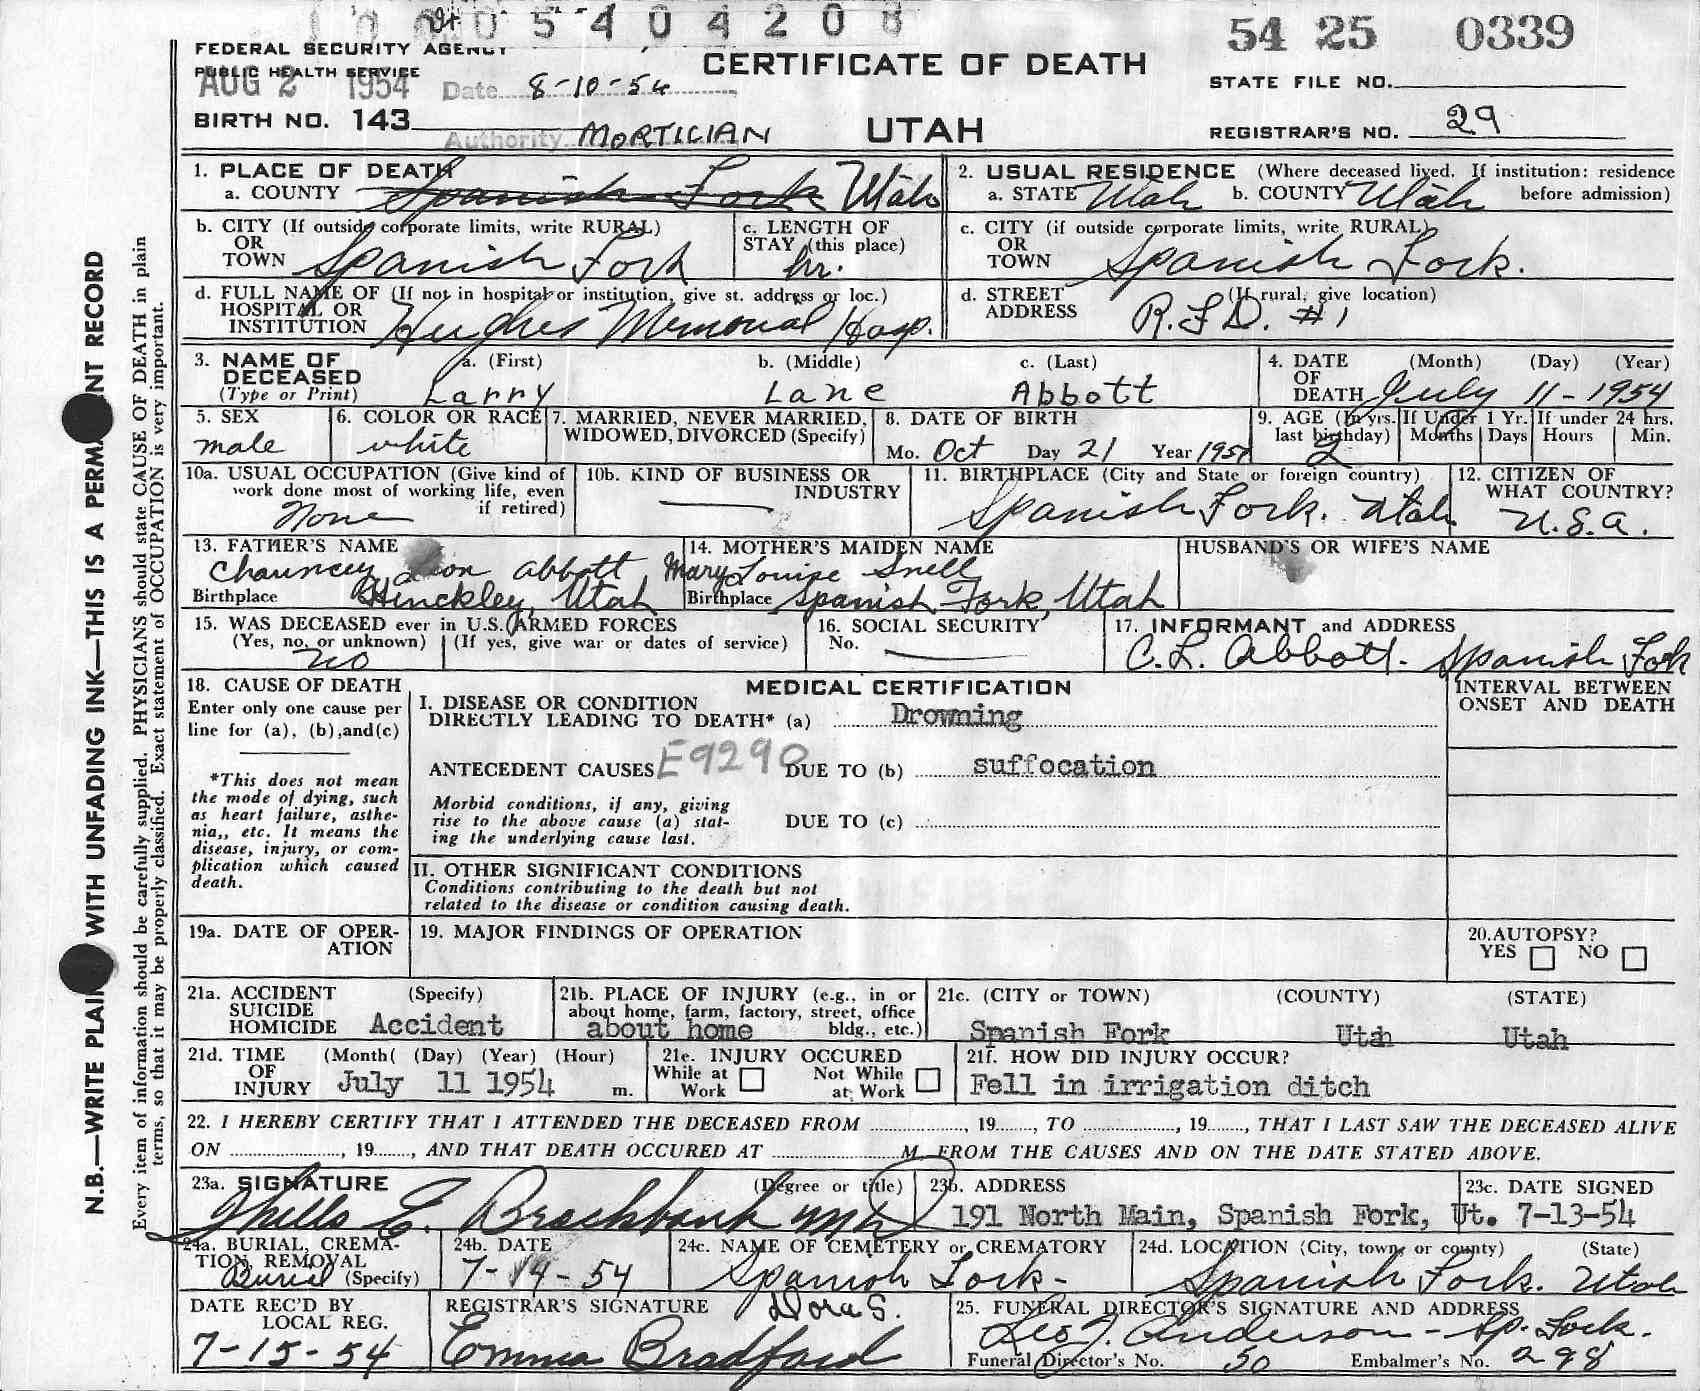 05404208
54 25 0339
FEDERAL SECURITY AGENCY
PUBLIC HEALTH SERVICE
AUG 2 1954 Date 8-10-54
CERTIFICATE OF DEATH
STATE FILE NO.
BIRTH NO. 143
Authority MORTICIAN
UTAH
REGISTRAR'S NO. 29
1. PLACE OF DEATH
a. COUNTY Spanish Fork Utah
2. USUAL RESIDENCE (Where deceased lived. If institution: residence before admission)
a. STATE Utah b. COUNTY Utah
b. CITY (If outside corporate limits, write RURAL)
OR
TOWN Spanish Fork
c. LENGTH OF
STAY (this place)
hr.
c. CITY (if outside corporate limits, write RURAL)
OR
TOWN Spanish Fork.
d. FULL NAME OF (If not in hospital or institution, give st. address or loc.)
HOSPITAL OR
INSTITUTION Hughes Memorial Hosp.
d. STREET (If rural, give location)
ADDRESS R.F.D. #1
3. NAME OF
DECEASED
(Type or Print)
a. (First) b. (Middle) c. (Last)
Larry Lane Abbott
4. DATE (Month) (Day) (Year)
OF
DEATH July 11-1954
5. SEX
male
6. COLOR OR RACE
white
7. MARRIED, NEVER MARRIED,
WIDOWED, DIVORCED (Specify)
8. DATE OF BIRTH
Mo. Oct Day 21 Year
9. AGE (In yrs. last birthday) 2
If Under 1 Yr. Months Days
If under 24 hrs. Hours Min.
10a. USUAL OCCUPATION (Give kind of
work done most of working life, even
if retired)
None
10b. KIND OF BUSINESS OR
INDUSTRY
11. BIRTHPLACE (City and State or foreign country)
Spanish Fork. Utah
12. CITIZEN OF
WHAT COUNTRY?
U.S.A.
13. FATHER'S NAME
Chauncey Abbott
Birthplace Hinckley, Utah
14. MOTHER'S MAIDEN NAME
Mary Louise Snell
Birthplace Spanish Fork, Utah
HUSBAND'S OR WIFE'S NAME
15. WAS DECEASED ever in U.S. ARMED FORCES
(Yes, no, or unknown) (If yes, give war or dates of service)
no
16. SOCIAL SECURITY
No.
17. INFORMANT and ADDRESS
C.L. Abbott. Spanish Fork
18. CAUSE OF DEATH
Enter only one cause per
line for (a), (b), and (c)
*This does not mean
the mode of dying, such
as heart failure, asthe-
nia,, etc. It means the
disease, injury, or com-
plication which caused
death.
MEDICAL CERTIFICATION
I. DISEASE OR CONDITION
DIRECTLY LEADING TO DEATH* (a) Drowning
ANTECEDENT CAUSES E9290 DUE TO (b) suffocation
Morbid conditions, if any, giving
rise to the above cause (a) stat-
ing the underlying cause last.
DUE TO (c)
INTERVAL BETWEEN
ONSET AND DEATH
II. OTHER SIGNIFICANT CONDITIONS
Conditions contributing to the death but not
related to the disease or condition causing death.
19a. DATE OF OPER-
ATION
19. MAJOR FINDINGS OF OPERATION
20. AUTOPSY?
YES NO
21a. ACCIDENT (Specify)
SUICIDE
HOMICIDE Accident
21b. PLACE OF INJURY (e.g., in or
about home, farm, factory, street, office
bldg., etc.)
about home
21c. (CITY or TOWN) (COUNTY) (STATE)
Spanish Fork Utah Utah
21d. TIME (Month( (Day) (Year) (Hour)
OF
INJURY July 11 1954 m.
21e. INJURY OCCURED
While at Work Not While at Work
21f. HOW DID INJURY OCCUR?
Fell in irrigation ditch
22. I HEREBY CERTIFY THAT I ATTENDED THE DECEASED FROM , 19 , TO , 19 , THAT I LAST SAW THE DECEASED ALIVE
ON , 19 , AND THAT DEATH OCCURED AT M. FROM THE CAUSES AND ON THE DATE STATED ABOVE.
23a. SIGNATURE (Degree or title)
E. Brockbank MD
23b. ADDRESS
191 North Main, Spanish Fork, Ut.
23c. DATE SIGNED
7-13-54
24a. BURIAL, CREMA-
TION, REMOVAL
Burial (Specify)
24b. DATE
7-14-54
24c. NAME OF CEMETERY or CREMATORY
Spanish Fork-
24d. LOCATION (City, town, or county) (State)
Spanish Fork. Utah
DATE REC'D BY
LOCAL REG.
7-15-54
REGISTRAR'S SIGNATURE Dora S.
Emma Bradford
25. FUNERAL DIRECTOR'S SIGNATURE AND ADDRESS
Leo J. Anderson - Sp. Fork.
Funeral Director's No. 50 Embalmer's No. 298
N.B.—WRITE WITH UNFADING INK—THIS IS A RECORD
Every item of information should be carefully supplied. PHYSICIANS should state CAUSE OF DEATH in plain
terms, so that it may be properly classified. Exact statement of OCCUPATION is very important.